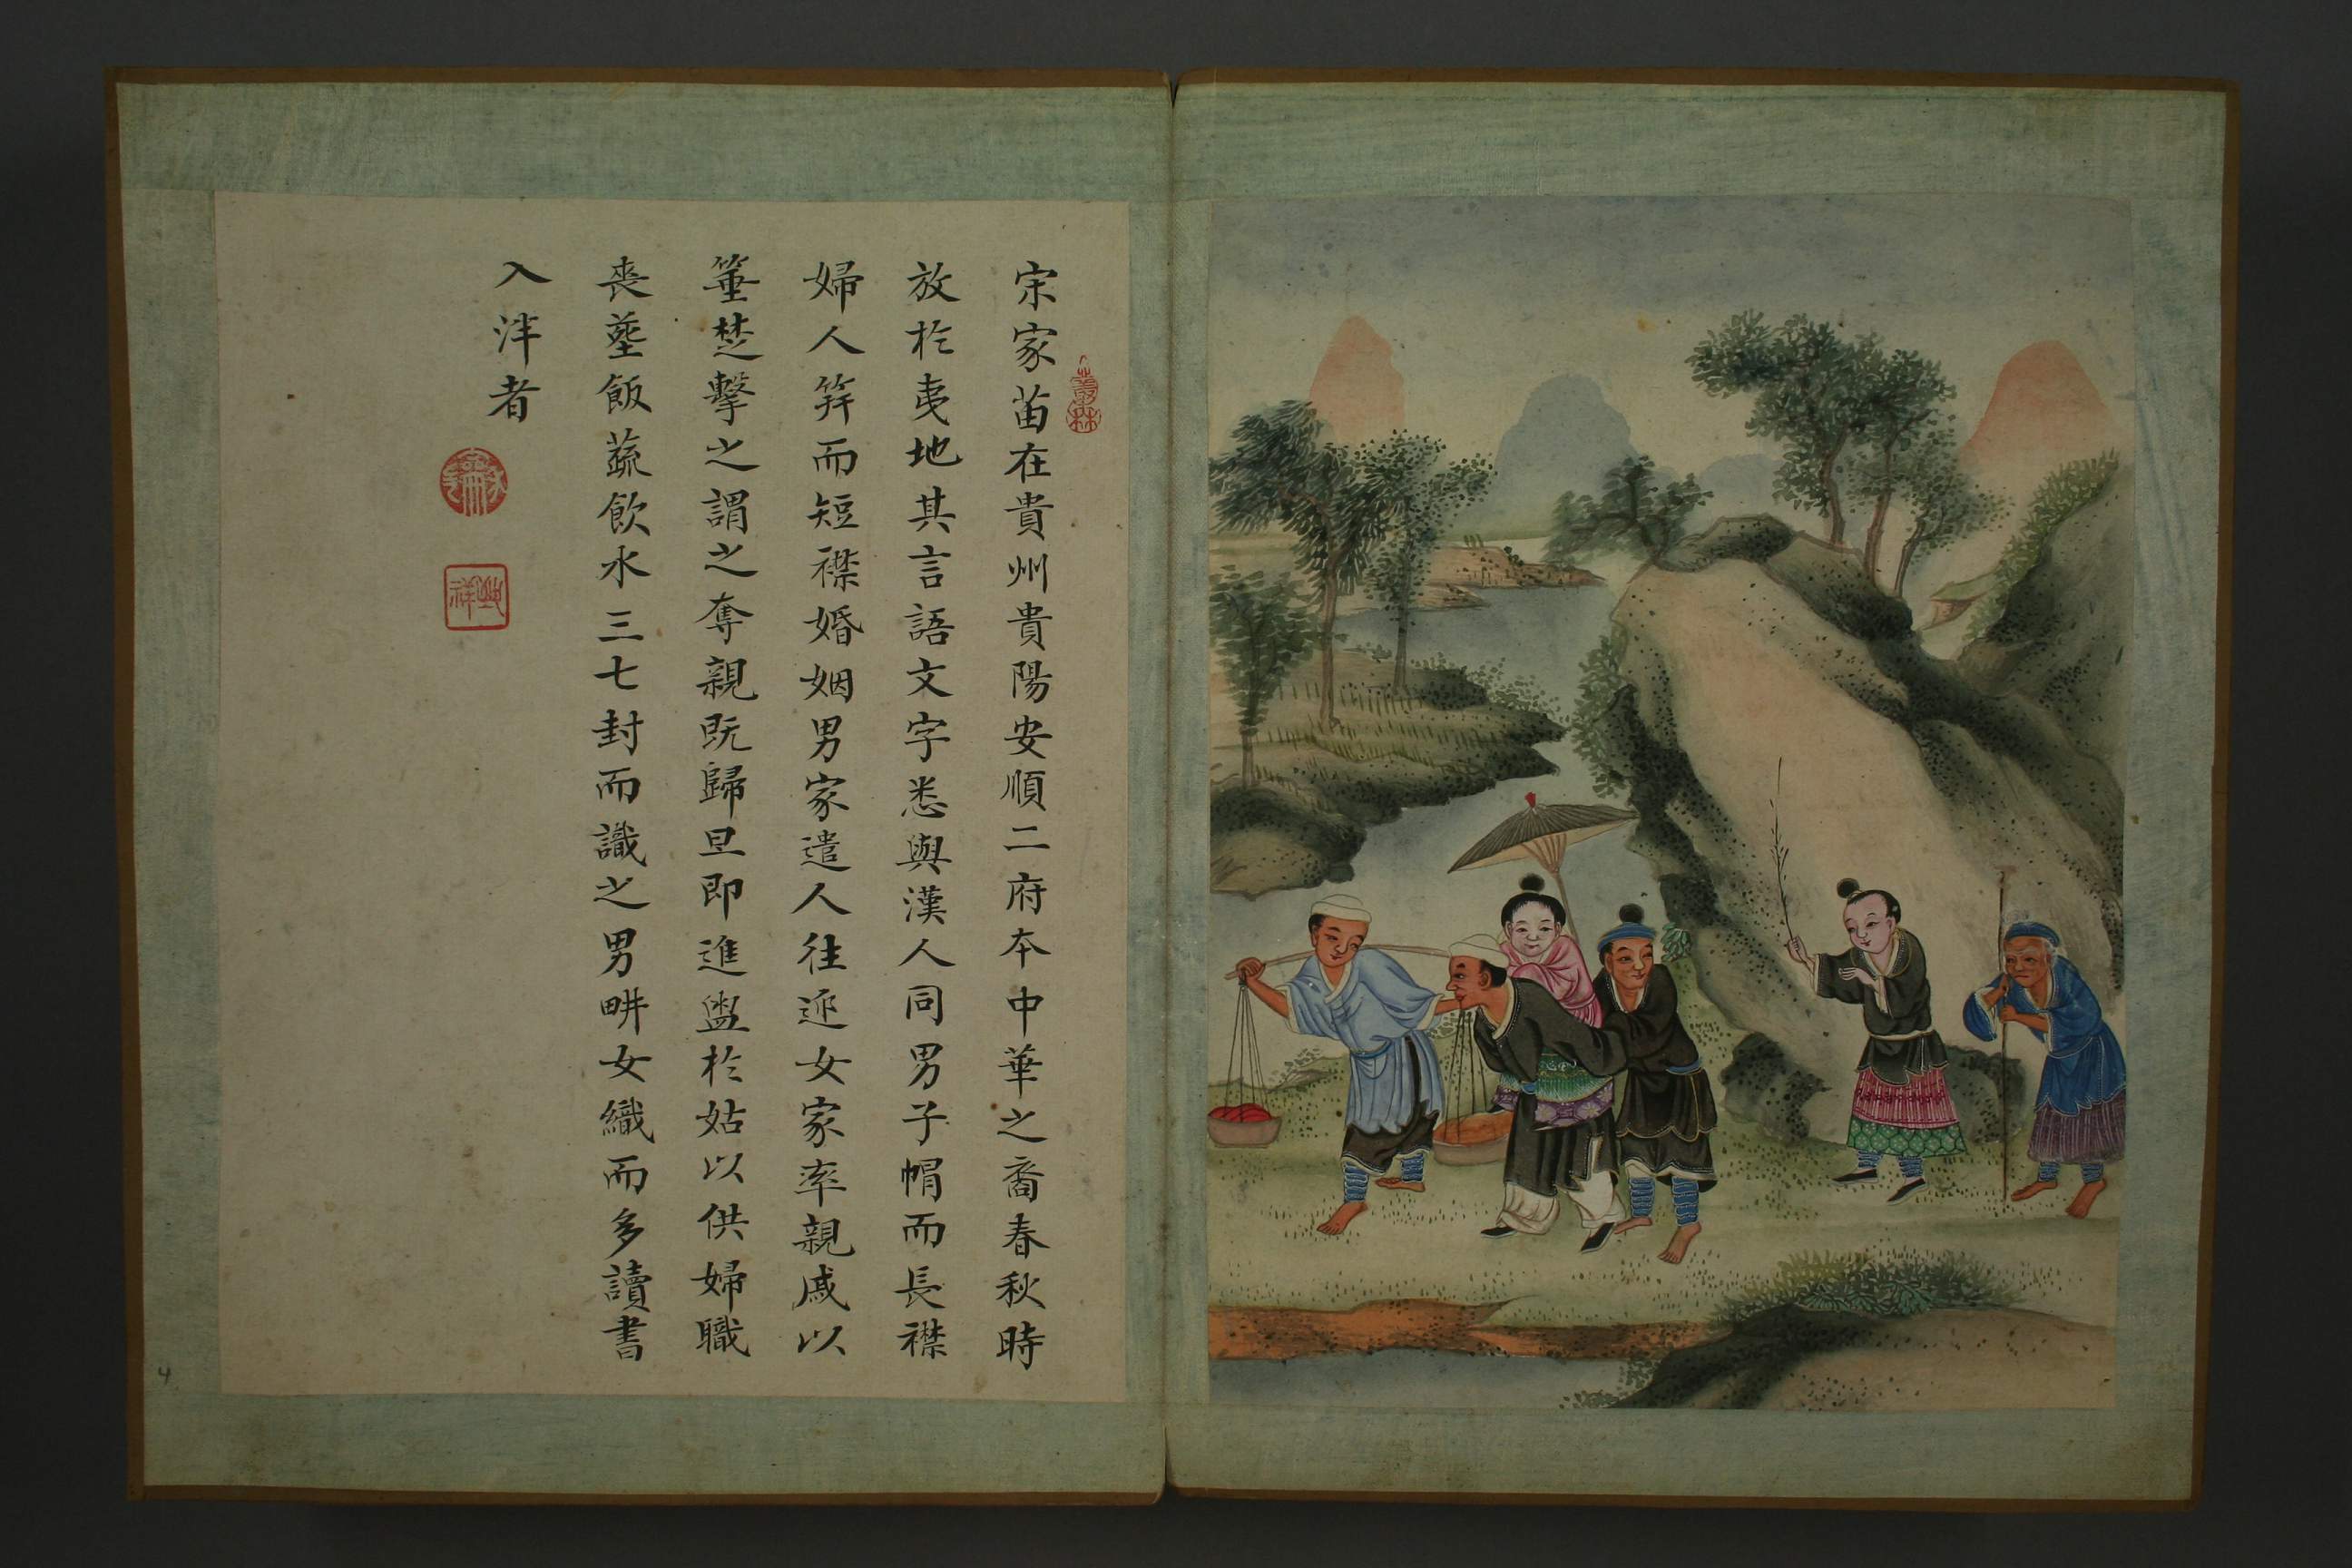 宋家苗在貴州貴陽安順二府本中華之裔春秋時
放於夷地其言語文字悉與漢人同男子帽而長襟
婦人笄而短襟婚姻男家遣人往迎女家率親戚以
箠楚擊之謂之奪親既歸旦即進盥於姑以供婦職
喪塟飯蔬飲水三七封而識之男畊女織而多讀書
入泮者
4